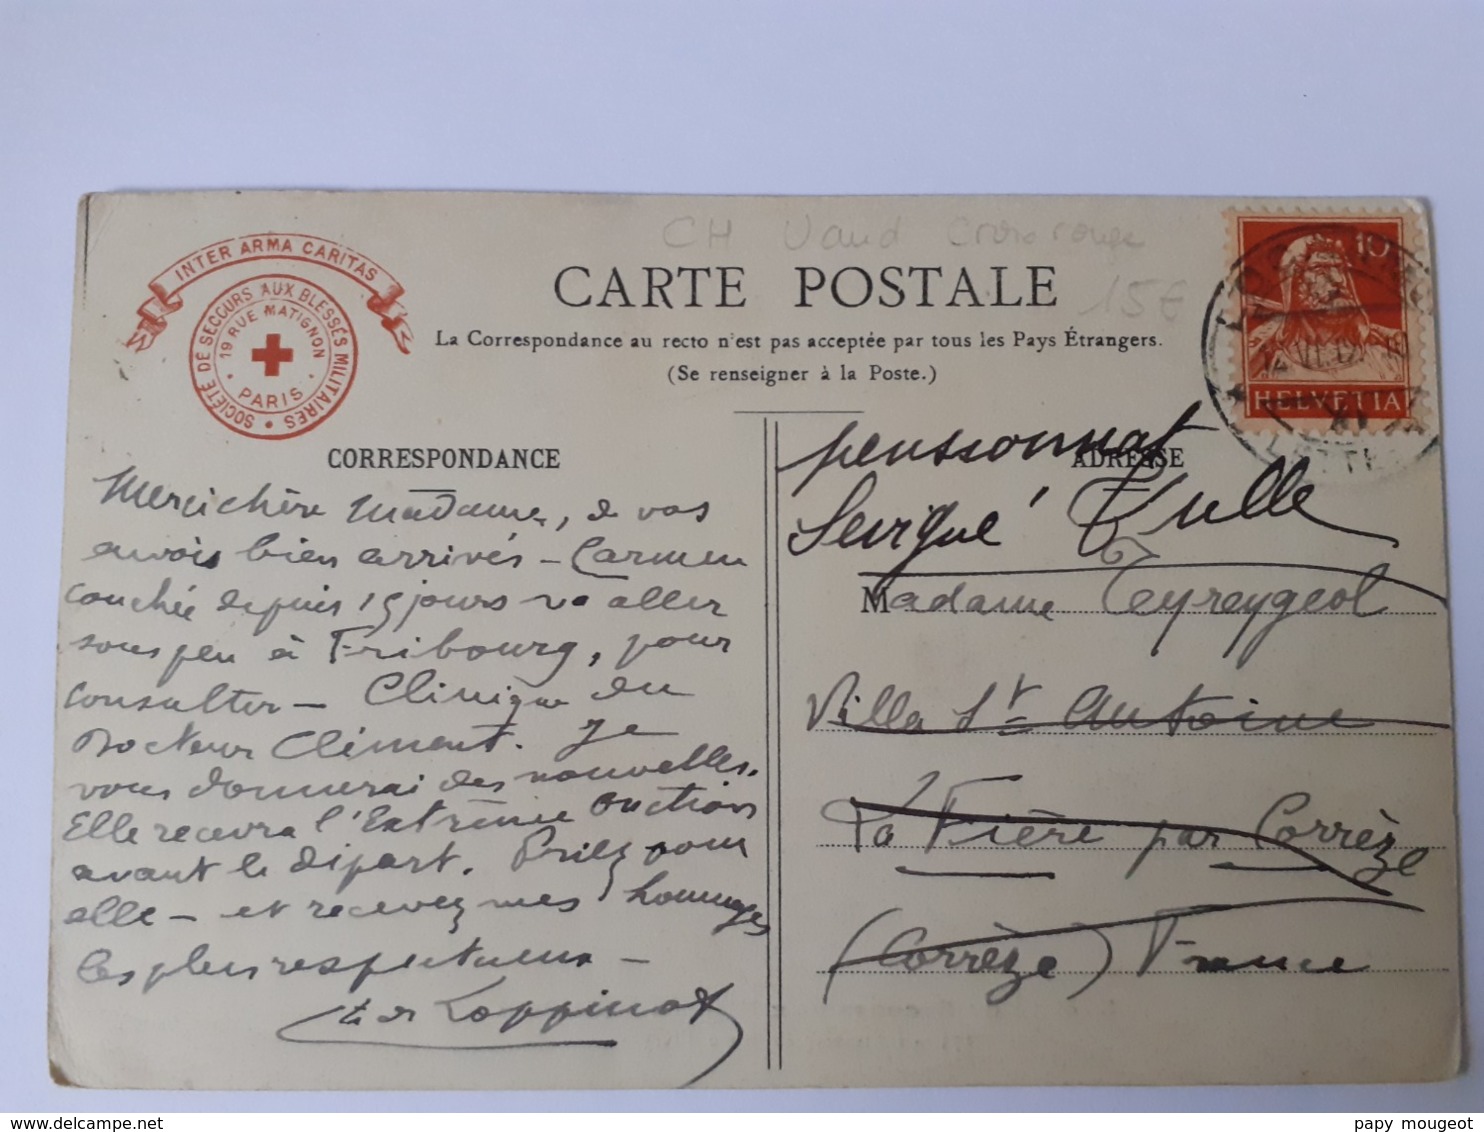 CH Vaud Croix rouge
15€
INTER ARMA CARITAS
SOCIÉTÉ DE SECOURS AUX BLESSÉS MILITAIRES
19 RUE MATIGNON
PARIS
CARTE POSTALE
La Correspondance au recto n'est pas acceptée par tous les Pays Étrangers.
(Se renseigner à la Poste.)
10
HELVETIA
CORRESPONDANCE
Merci chère Madame, de vos
envois bien arrivés – Carmen
couchée depuis 15 jours va aller
sous peu à Fribourg, pour
consulter – Clinique du
Docteur Clément. Je
vous donnerai des nouvelles.
Elle recevra l'Extrême Onction
avant le départ. Priez pour
elle – et recevez mes hommages
les plus respectueux –
Loppinot
ADRESSE
pensionnat
Sévigné Tulle
Madame Teyreygeol
Villa St Antoine
La Fière par Corrèze
(Corrèze) France
papy mougeot